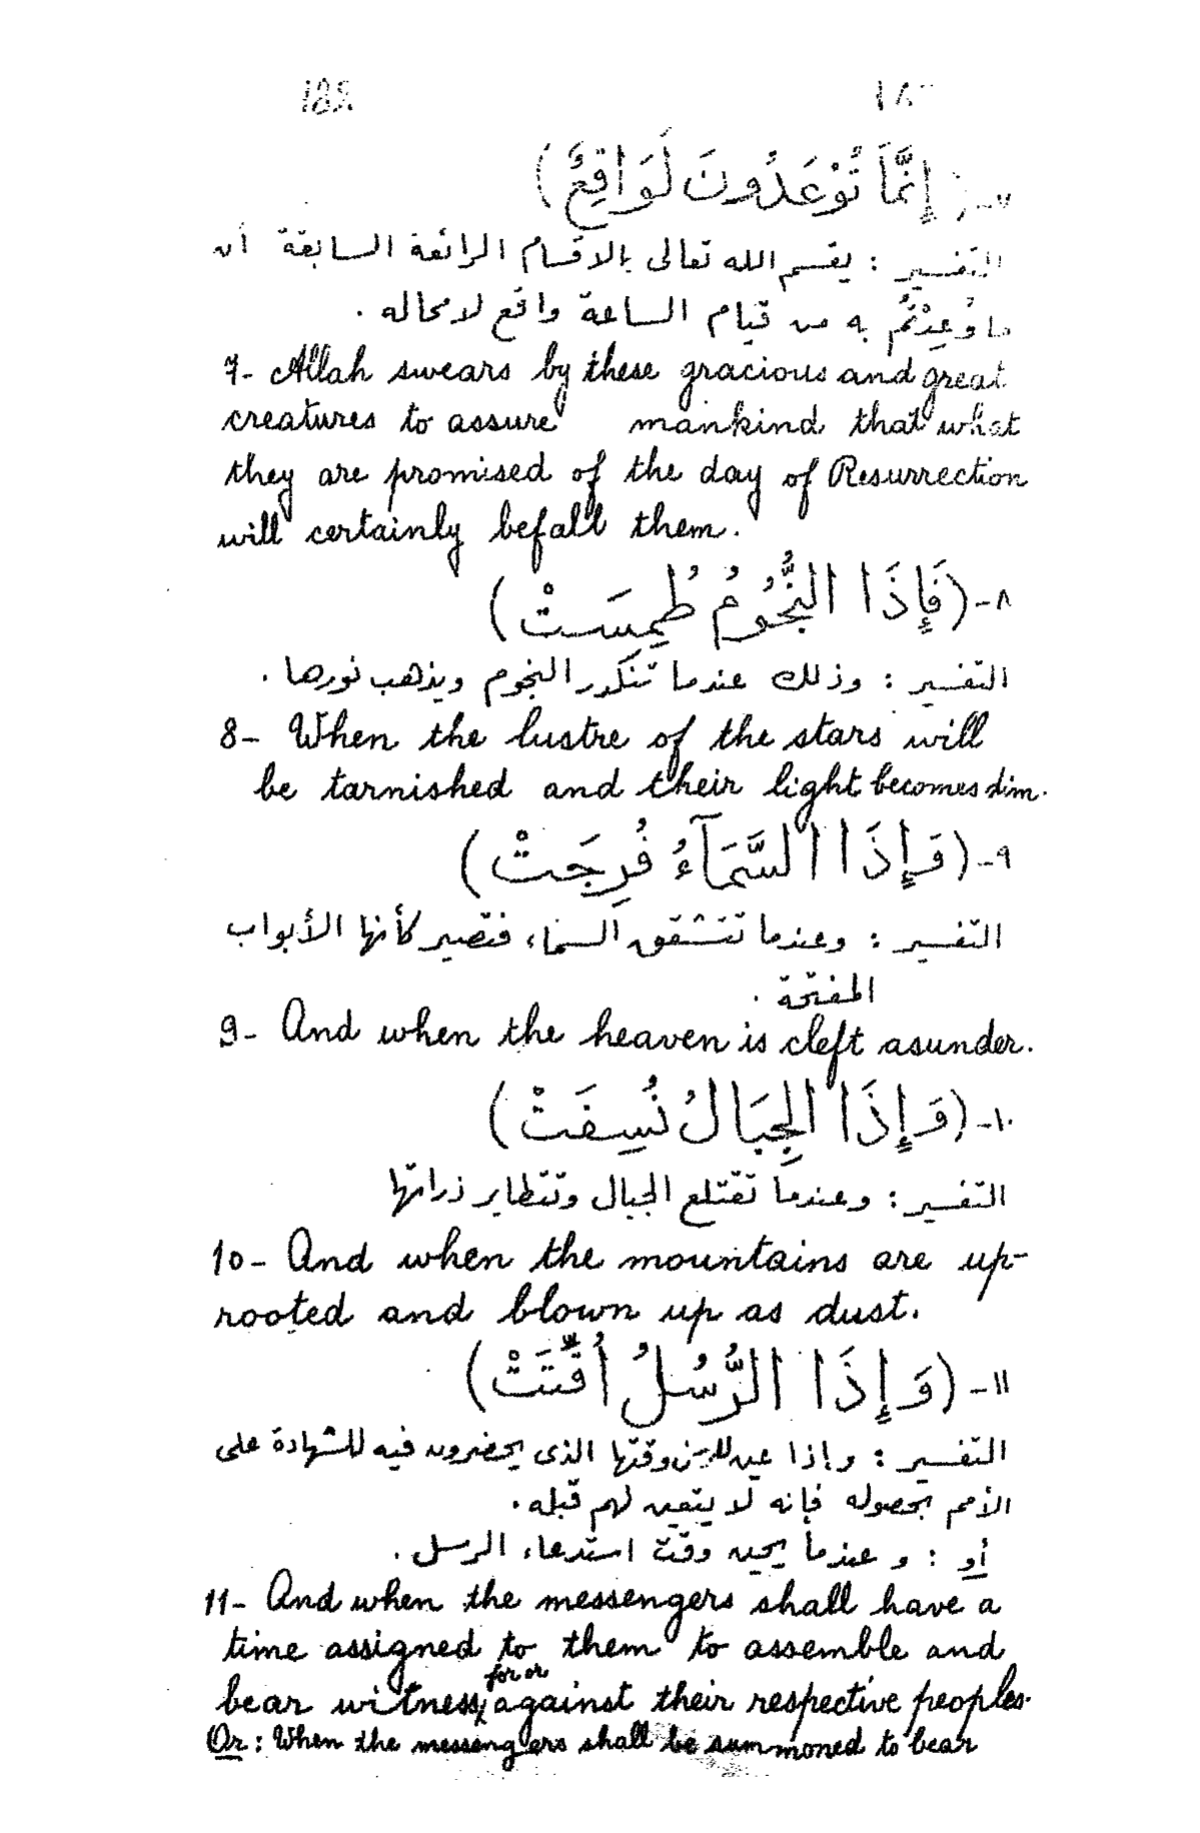 188
٧- (إِنَّمَا تُوْعَدُونَ لَوَاقِعٌ)
التفسير : يقسم الله تعالى بالاقسام الرائعة السابقة أن
ما وُعِدْتُمُ به من قيام الساعة واقع لا محاله .
7- Allah swears by these gracious and great
creatures to assure mankind that what
they are promised of the day of Resurrection
will certainly befall them.
٨- (فَإِذَا النُّجُومُ طُمِسَتْ)
التفسير : وذلك عندما تنكدر النجوم ويذهب نورها .
8- When the lustre of the stars will
be tarnished and their light becomes dim.
٩- (وَإِذَا السَّمَآءُ فُرِجَتْ)
التفسير : وعندما تتشقق السماء فتصير كأنها الأبواب
المفتحة .
9- And when the heaven is cleft asunder.
١٠- (وَإِذَا الجِبَالُ نُسِفَتْ)
التفسير : وعندما تقتلع الجبال وتتطاير ذراتها
10- And when the mountains are up-
rooted and blown up as dust.
١١- (وَإِذَا الرُّسُلُ أُقِّتَتْ)
التفسير : وإذا عين للرسل وقتها الذى يحضرون فيه للشهادة على
الأمم بحصوله فإنه لا يتعين لهم قبله .
أو : و عندما يحين وقت استدعاء الرسل .
11- And when the messengers shall have a
time assigned to them to assemble and
bear witness for or against their respective peoples.
Or : When the messengers shall be summoned to bear